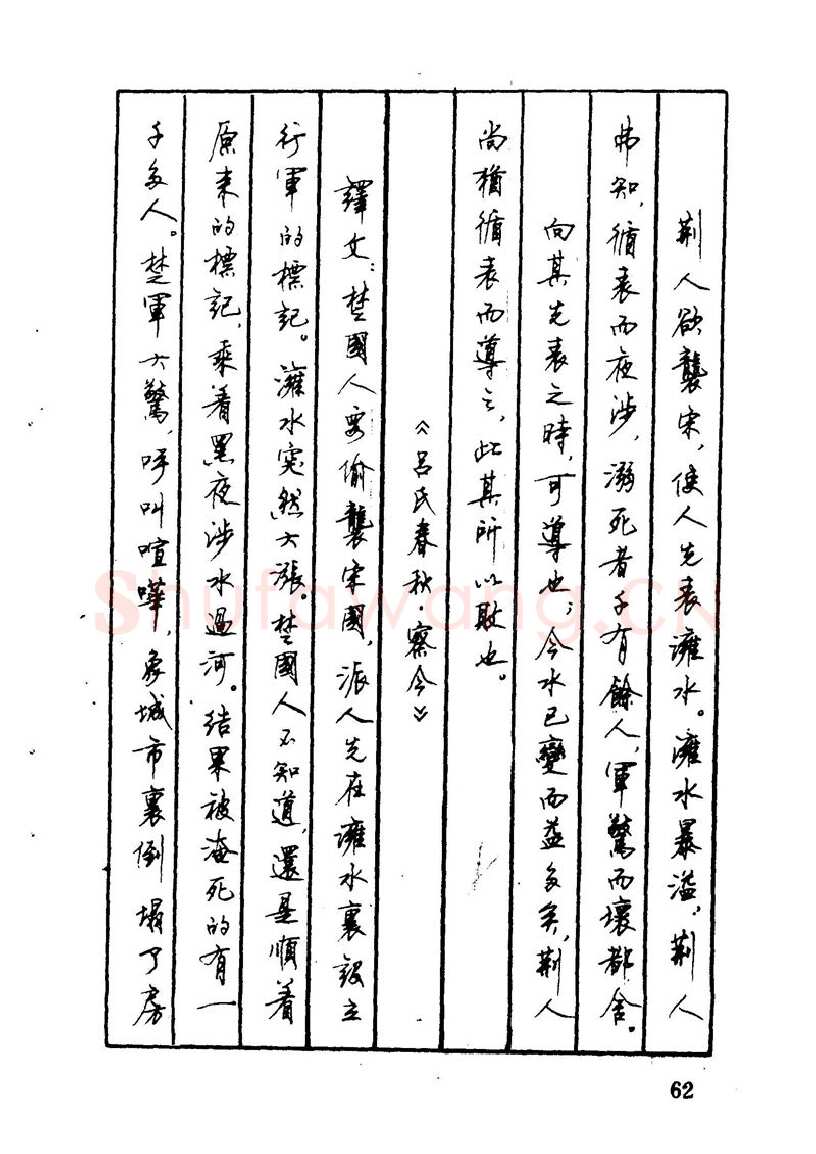 荆人欲襲宋，使人先表澭水。澭水暴溢，荆人
弗知，循表而夜涉，溺死者千有餘人，軍驚而壞都舍。
向其先表之時，可導也；今水已變而益多矣，荆人
尚猶循表而導之，此其所以敗也。
《吕氏春秋 察今》
譯文：楚國人要偷襲宋國，派人先在澭水裏設立
行軍的標記。澭水突然大漲。楚國人不知道，還是順着
原来的標記，乘着黑夜涉水過河。結果被淹死的有一
千多人。楚軍大驚，呼叫喧嘩，象城市裏倒塌了房
62
Shufawang.CN